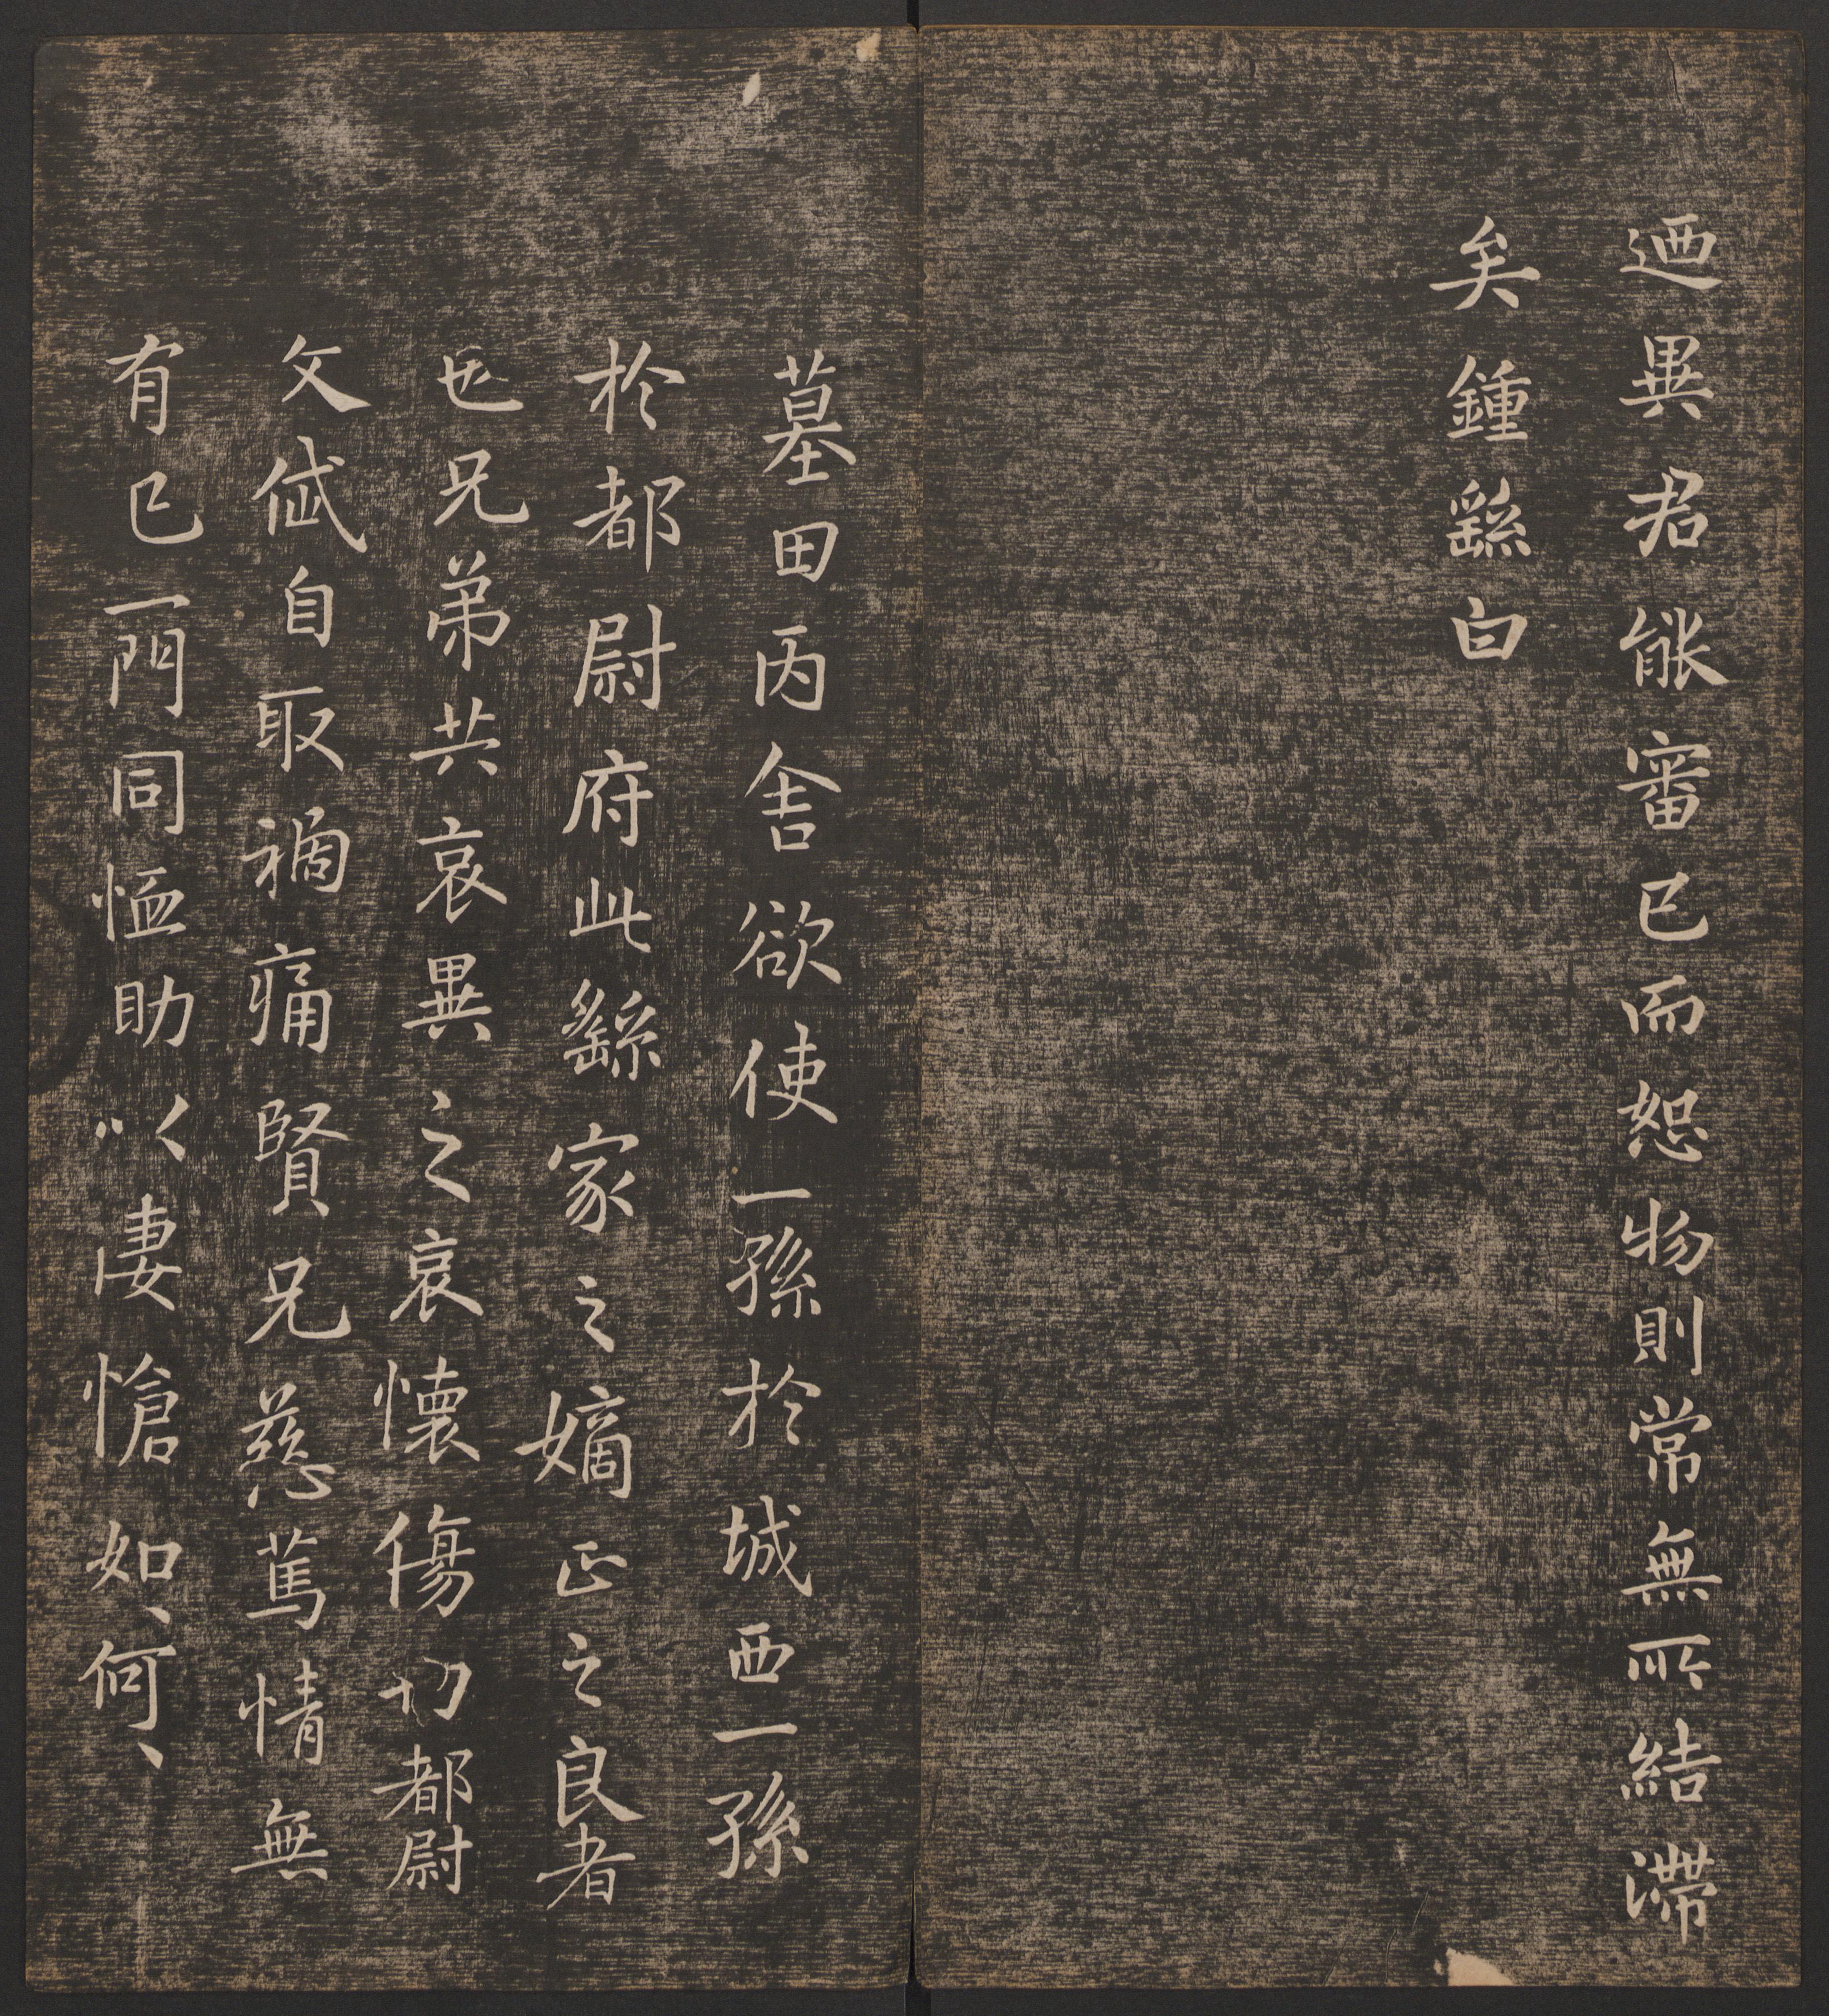 迺異君能審己而恕物則常無所結滯
矣鍾繇白
墓田丙舍欲使一孫於城西一孫
於都尉府此繇家之嫡正之良者
也兄弟共哀異之哀懷傷切都尉
文岱自取禍痛賢兄慈篤情無
有已一門同恤助以悽愴如、何、